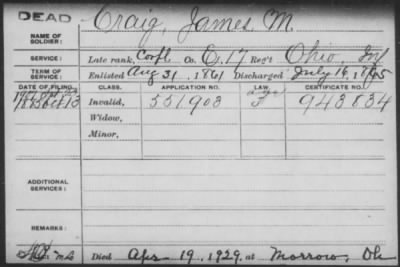 DEAD
Craig, James M.
NAME OF SOLDIER:
SERVICE: Late rank, Corpl Co. G, 17 Reg't Ohio Inf
TERM OF SERVICE: Enlisted Aug 31, 1861 Discharged July 16, 1865
DATE OF FILING. CLASS. APPLICATION NO. LAW. CERTIFICATE NO.
1885 Oct 13 Invalid, 551903 943834
Widow,
Minor,
ADDITIONAL SERVICES:
REMARKS:
Died Apr 19, 1929, at Morrow, Oh